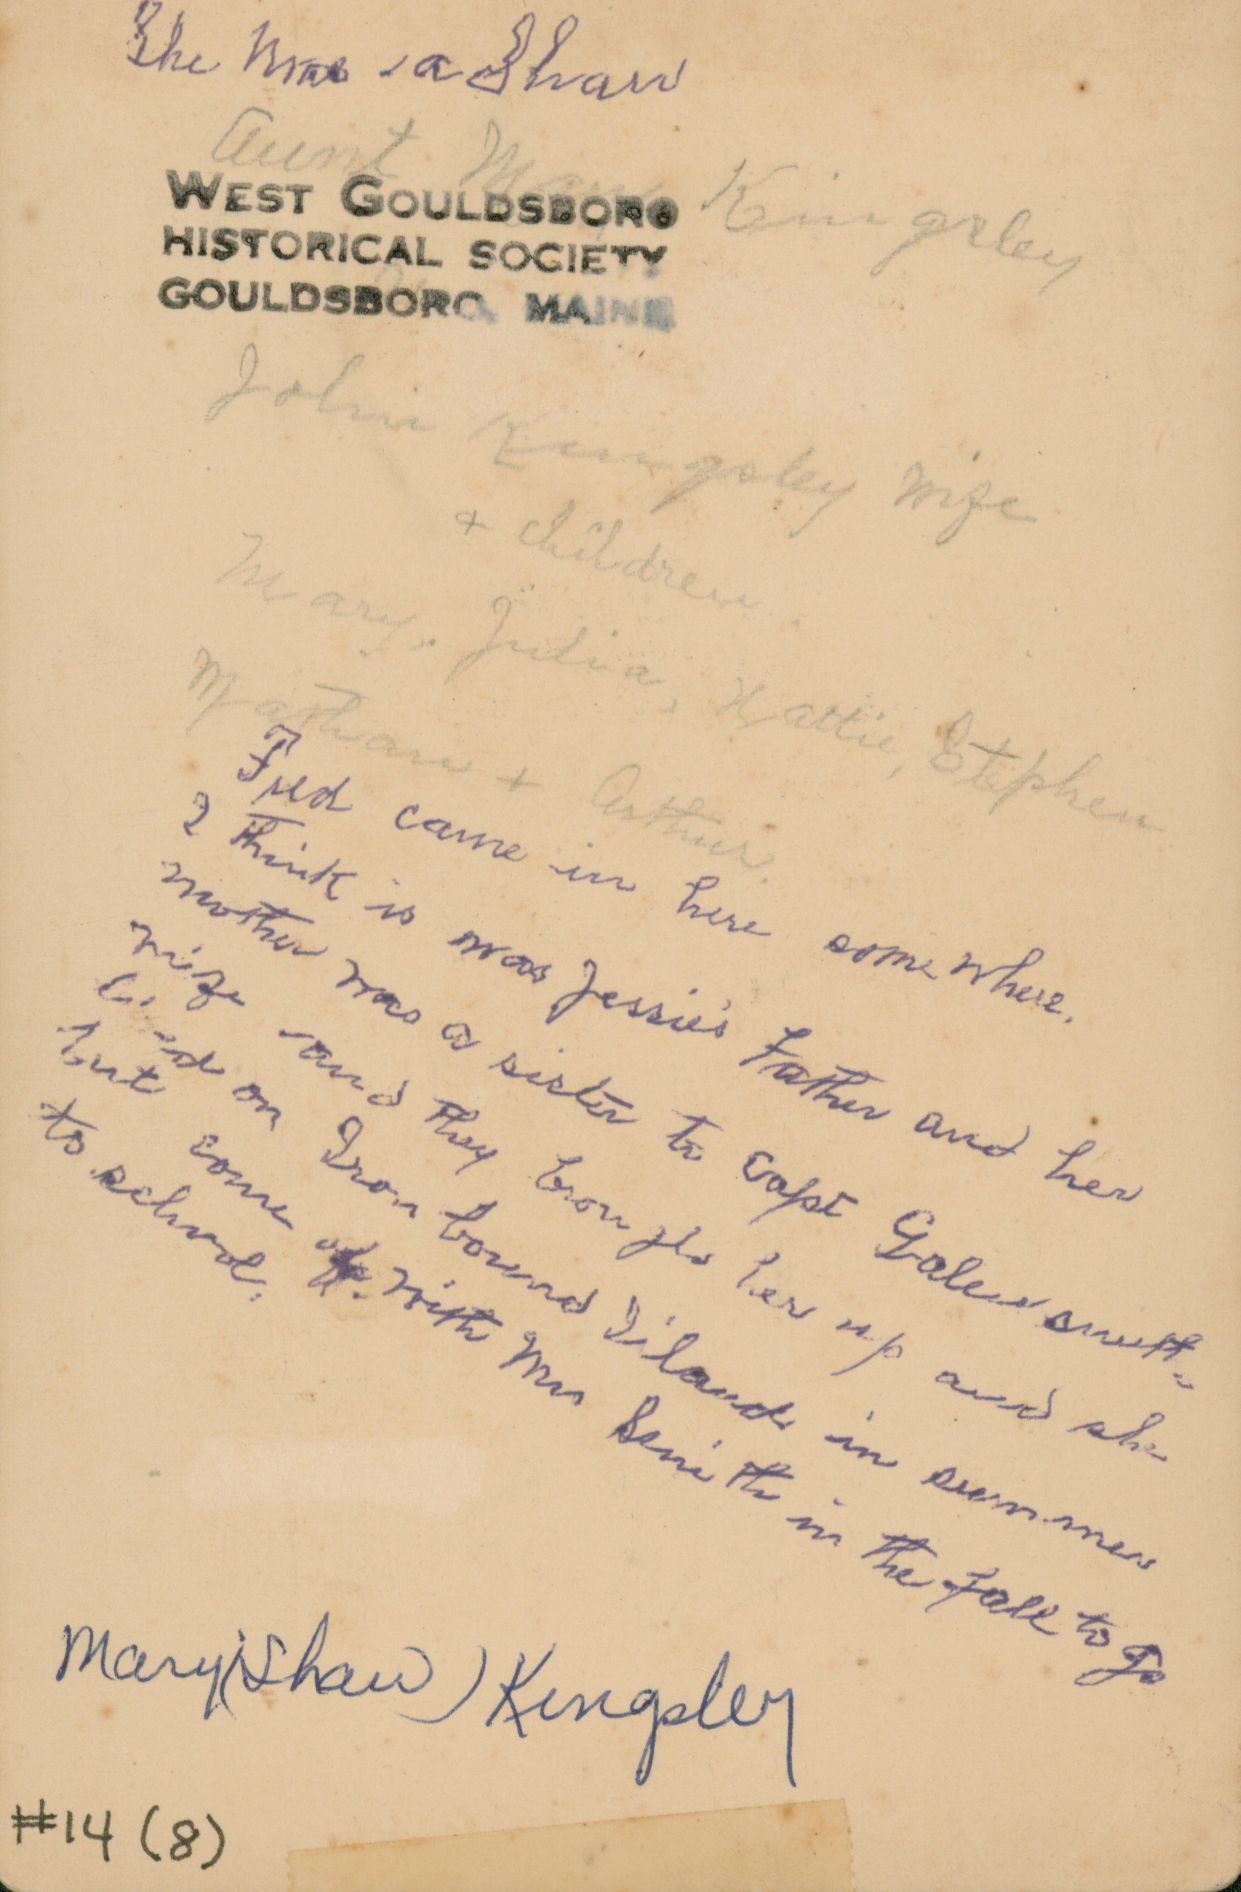 She was a Shaw
Aunt Mary Kingsley
WEST GOULDSBORO
HISTORICAL SOCIETY
GOULDSBORO, MAINE
John Kingsley wife
+ children
Mary, Julia, Hattie, Stephen
Nathan + Arthur.
Fred came in here somewhere.
I think is was Jessie's Father and her
mother was a sister to Capt Galen Smith
wife and they brough her up and she
lived on Iron bound Island in summer
but come up with Mrs Smith in the Fall to go
to school.
Mary (Shaw) Kingsley
#14 (8)